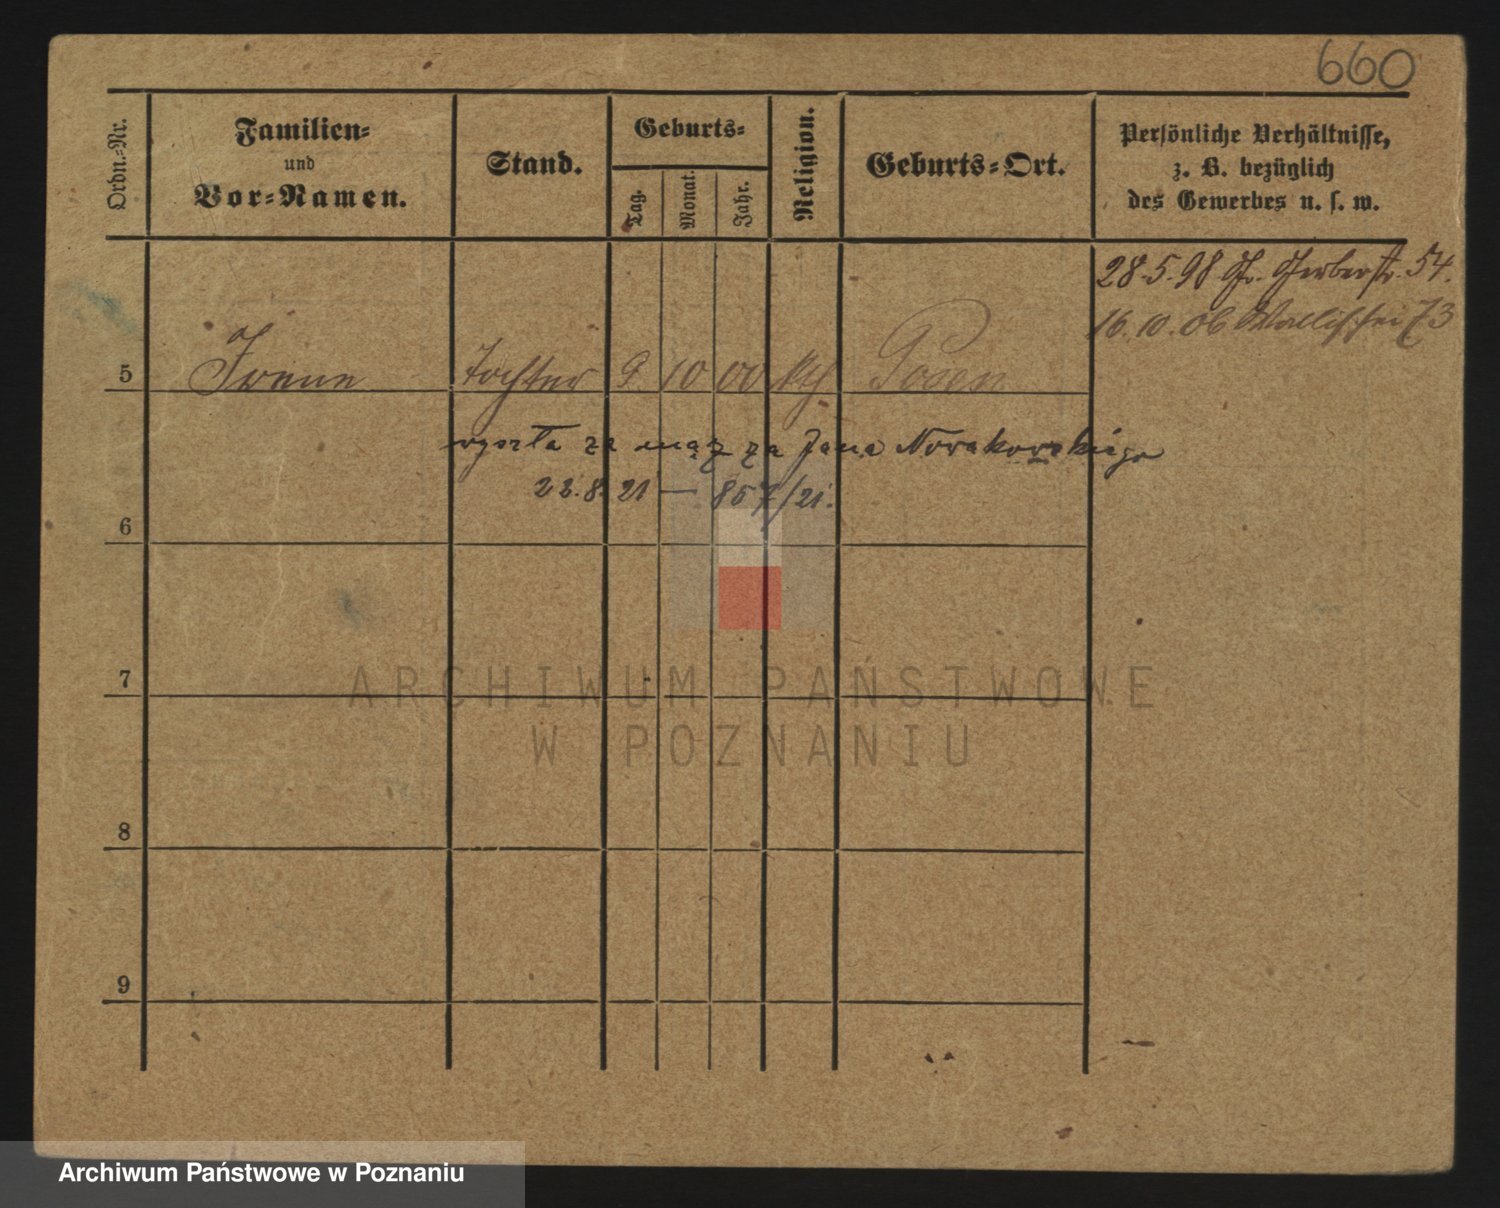 660
Ordn.-Nr.
Familien-
und
Vor-Namen.
Stand.
Geburts-
Tag.
Monat.
Jahr.
Religion.
Geburts-Ort.
Persönliche Verhältnisse,
z. B. bezüglich
des Gewerbes u. s. w.
28.5.98 Gr. Gerberstr. 54.
16.10.06 Wallischei 73
5 Irene Tochter 9 10 00 kth Posen
wyszła za mąż za Jana Nowakowskiego
22.8.21 — 857/21.
6
7
8
9
ARCHIWUM PAŃSTWOWE
W POZNANIU
Archiwum Państwowe w Poznaniu